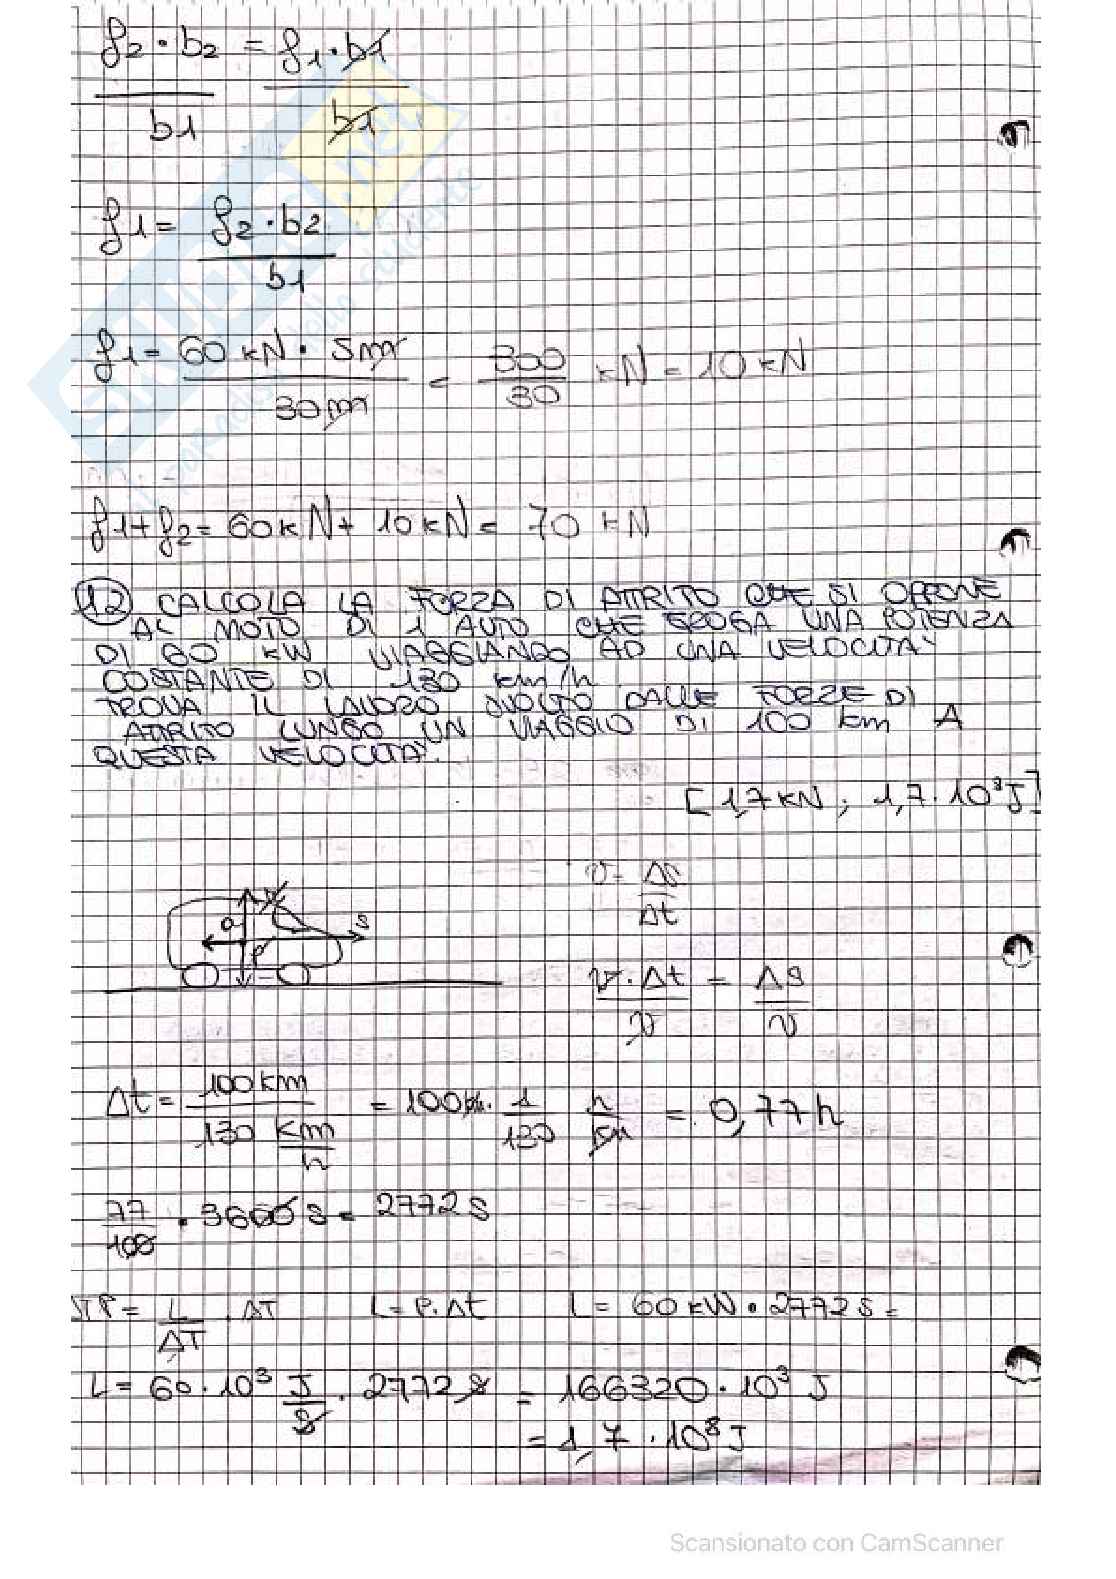 f2 · b2 = f1 · b1
b1 b1
f1 = f2 · b2
b1
f1 = 60 kN · 5m = 300 kN = 10 kN
30m 30
f1 + f2 = 60 kN + 10 kN = 70 kN
12 CALCOLA LA FORZA DI ATTRITO CHE SI OPPONE
AL MOTO DI 1 AUTO CHE EROGA UNA POTENZA
DI 60 KW VIAGGIANDO AD UNA VELOCITA'
COSTANTE DI 130 km/h
TROVA IL LAVORO SVOLTO DALLE FORZE DI
ATTRITO LUNGO UN VIAGGIO DI 100 km A
QUESTA VELOCITA'.
[1,7 KN ; 1,7 · 10⁸ J]
v = Δs
Δt
v · Δt = Δs
v v
Δt = 100 km = 100 km · 1 h = 0,77 h
130 km 130 km
h
77 · 3600 s = 2772 s
100
P = L · ΔT L = P · Δt L = 60 kW · 2772 s =
ΔT
L = 60 · 10³ J · 2772 s = 166320 · 10³ J
s
= 1,7 · 10⁸ J
Scansionato con CamScanner